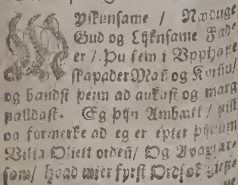 MYskunsame / Naduge
Gud og Lijknsame Fad-
er / Þu sem i Vpphaſe
skapader Mañ og Kovñu/
og bandst þeim ad aukast og marg
falldast. Eg þijn Ambatt / nist
og formerke ad eg er epter þijnum
Vilia
orden/ Og Avaxar
som/ hvad mier fyrst